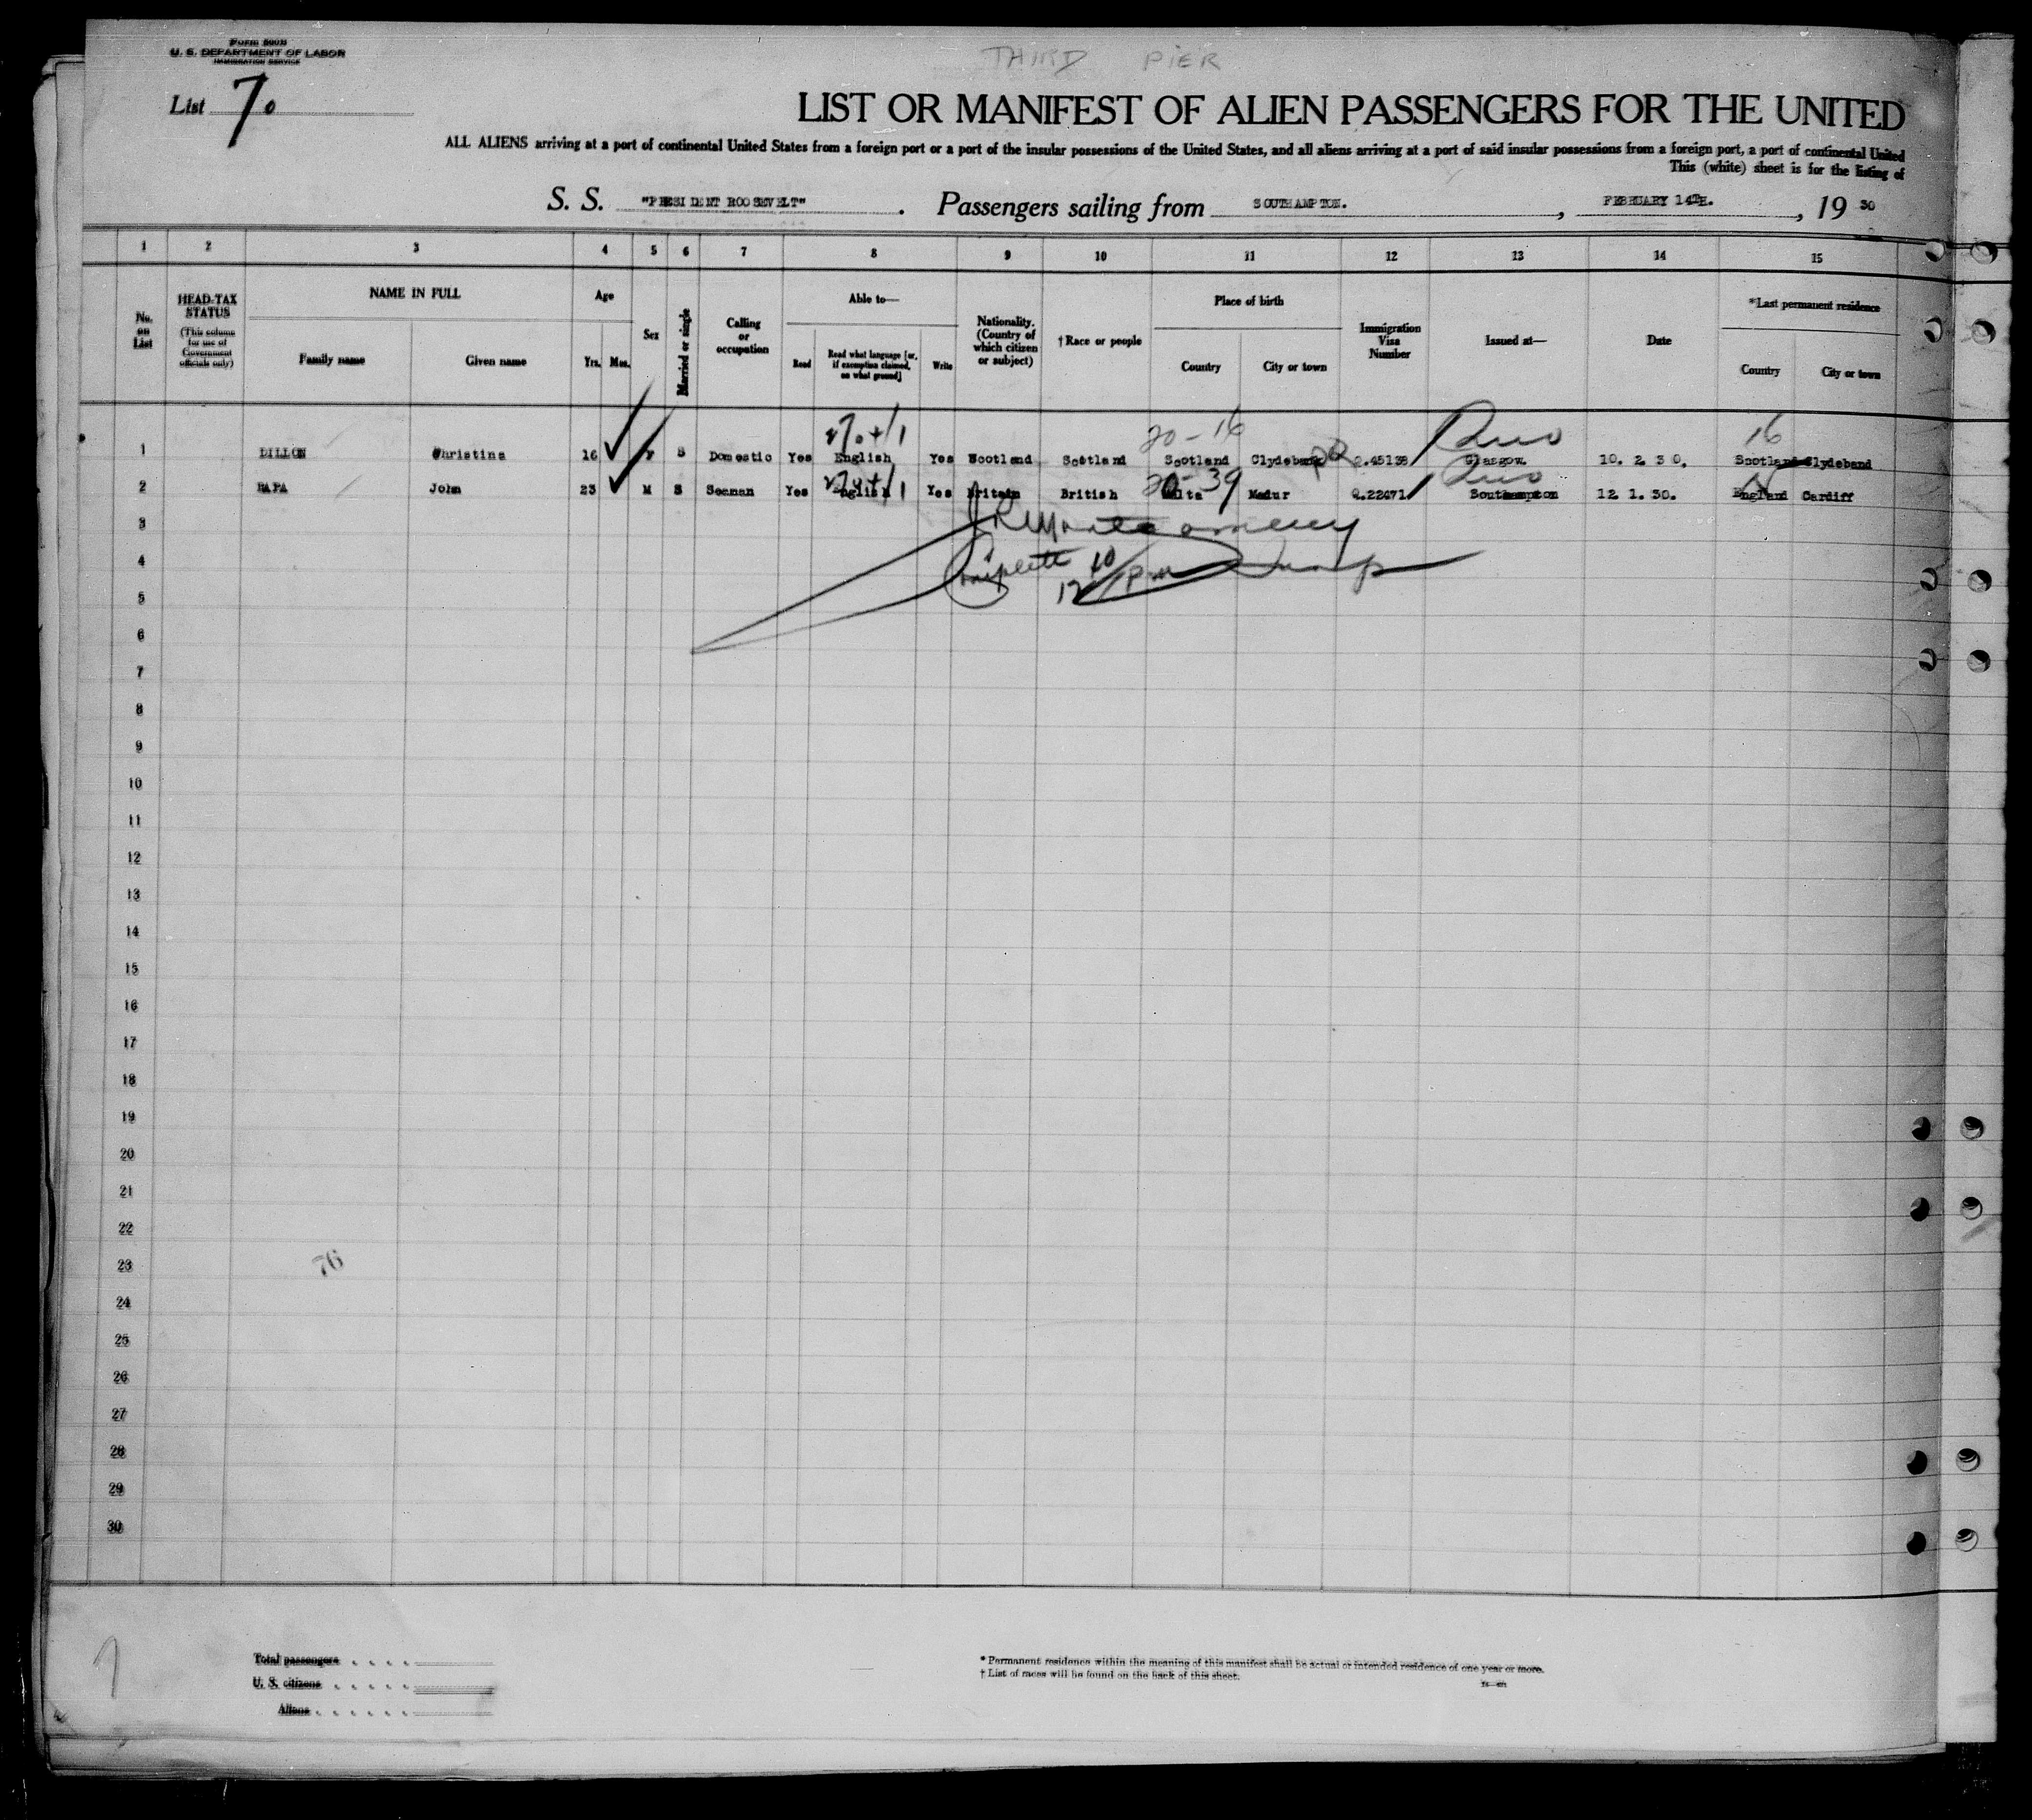 Form 500B
U. S. DEPARTMENT OF LABOR
IMMIGRATION SERVICE
THIRD PIER
List 70
LIST OR MANIFEST OF ALIEN PASSENGERS FOR THE UNITED
ALL ALIENS arriving at a port of continental United States from a foreign port or a port of the insular possessions of the United States, and all aliens arriving at a port of said insular possessions from a foreign port, a port of continental United
This (white) sheet is for the listing of
S. S. "PRESIDENT ROOSEVELT". Passengers sailing from SOUTHAMPTON., FEBRUARY 14TH., 19 30
1 2 3 4 5 6 7 8 9 10 11 12 13 14 15
No. on List
HEAD-TAX STATUS
(This column for use of Government officials only)
NAME IN FULL
Family name Given name
Age
Yrs. Mos.
Sex
Married or single
Calling or occupation
Able to—
Read
Read what language [or, if exemption claimed, on what ground]
Write
Nationality. (Country of which citizen or subject)
† Race or people
Place of birth
Country City or town
Immigration Visa Number
Issued at—
Date
*Last permanent residence
Country City or town
20-16 16
1 DILLON Christina 16 F S Domestic Yes English Yes Scotland Scotland Scotland Clydebank Q.45138 Glasgow. 10. 2. 30. Scotland Clydeband
20-39
2 PAPA John 23 M S Seaman Yes English Yes Britain British Malta Medur Q.22471 Southampton 12. 1. 30. England Cardiff
3
4
5
6
7
8
9
10
11
12
13
14
15
16
17
18
19
20
21
22
23 76
24
25
26
27
28
29
30
Total passengers
U. S. citizens
Aliens
* Permanent residence within the meaning of this manifest shall be actual or intended residence of one year or more.
† List of races will be found on the back of this sheet.